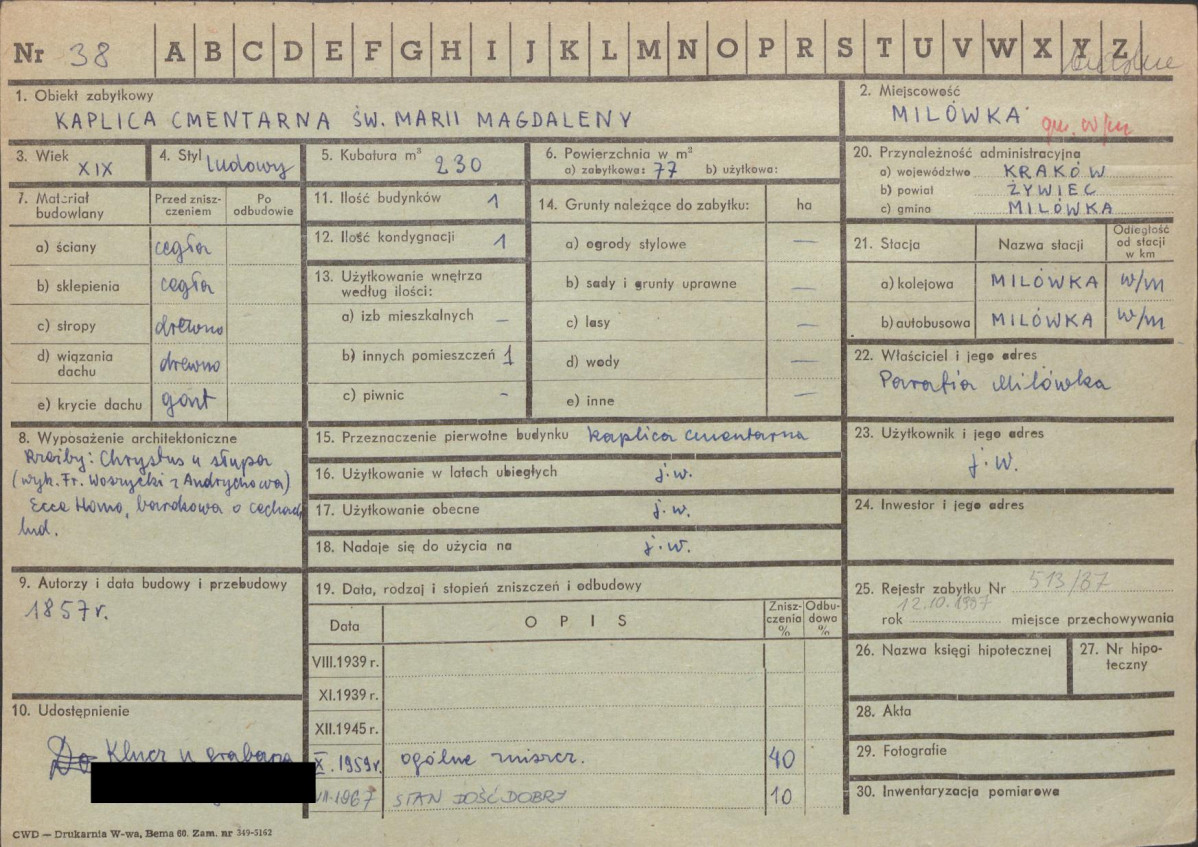 Nr 38 A B C D E F G H I J K L M N O P R S T U V W X Y Z
1. Obiekt zabytkowy
KAPLICA CMENTARNA ŚW. MARII MAGDALENY
2. Miejscowość
MILÓWKA
3. Wiek
XIX
4. Styl ludowy
5. Kubatura m³
230
6. Powierzchnia w m²
a) zabytkowa: 77 b) użytkowa:
20. Przynależność administracyjna
a) województwo KRAKÓW
b) powiat ŻYWIEC
c) gmina MILÓWKA
7. Materiał budowlany
Przed znisz-
czeniem
Po
odbudowie
a) ściany cegła
b) sklepienia cegła
c) stropy drewno
d) wiązania
dachu drewno
e) krycie dachu gont
11. Ilość budynków 1
12. Ilość kondygnacji 1
13. Użytkowanie wnętrza
według ilości:
a) izb mieszkalnych –
b) innych pomieszczeń 1
c) piwnic –
14. Grunty należące do zabytku: ha
a) ogrody stylowe —
b) sady i grunty uprawne —
c) lasy —
d) wody —
e) inne —
21. Stacja Nazwa stacji
Odległość
od stacji
w km
a) kolejowa MILÓWKA w/m
b) autobusowa MILÓWKA w/m
22. Właściciel i jego adres
Parafia Milówka
8. Wyposażenie architektoniczne
Rzeźby: Chrystus u słupa
(wyk. Fr. Woszycki z Andrychowa)
Ecce Homo, barokowa o cechach
lud.
15. Przeznaczenie pierwotne budynku kaplica cmentarna
16. Użytkowanie w latach ubiegłych j.w.
17. Użytkowanie obecne j.w.
18. Nadaje się do użycia na j.w.
23. Użytkownik i jego adres
j.w.
24. Inwestor i jego adres
9. Autorzy i data budowy i przebudowy
1857 r.
19. Data, rodzaj i stopień zniszczeń i odbudowy
Data OPIS
Znisz-
czenia
%
Odbu-
dowa
%
VIII.1939 r.
XI.1939 r.
XII.1945 r.
X.1959 r. ogólne zniszcz. 40
VII-1967 STAN DOŚĆ DOBRY 10
25. Rejestr zabytku Nr 513/87
12.10.1987
rok miejsce przechowywania
26. Nazwa księgi hipotecznej
27. Nr hipo-
teczny
28. Akta
29. Fotografie
30. Inwentaryzacja pomiarowa
10. Udostępnienie
Do Klucz u grabarza
CWD — Drukarnia W-wa, Bema 60. Zam. nr 349-5162